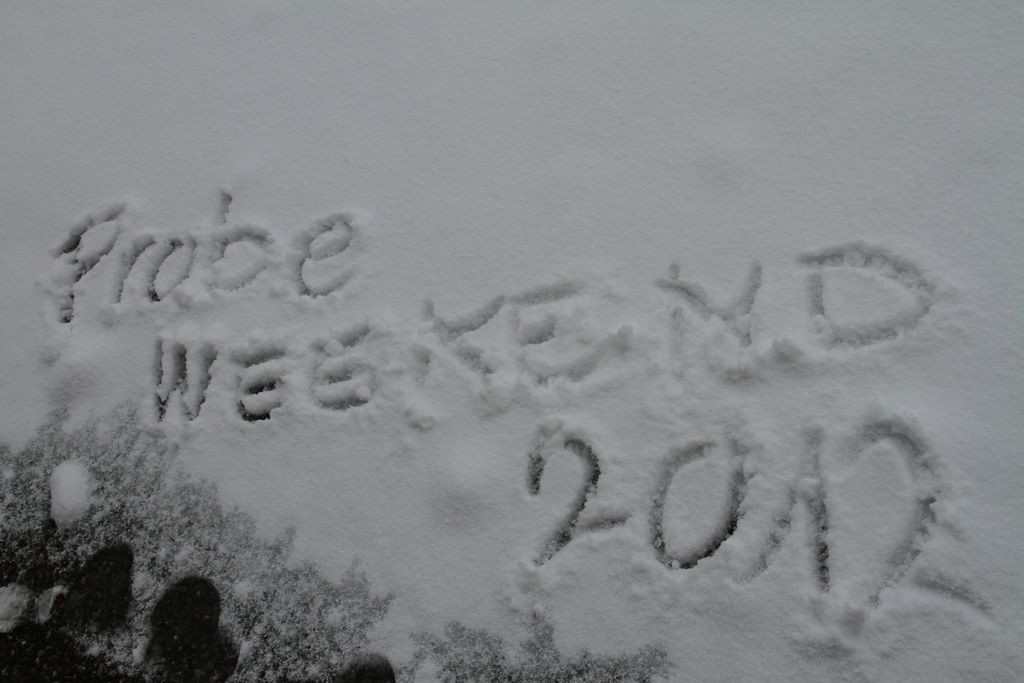 Probe
WEEKEND
2012